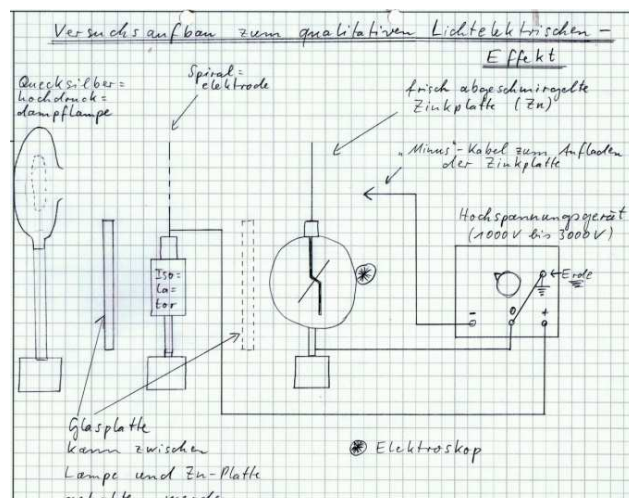 Versuchsaufbau zum qualitativen Lichtelektrischen-
Effekt
Quecksilber=
hochdruck=
dampflampe
Spiral=
elektrode
frisch abgeschmirgelte
Zinkplatte (Zn)
„Minus"-Kabel zum Aufladen
der Zinkplatte
Hochspannungsgerät
(1000 V bis 3000 V)
Erde
- 0 +
Iso=
la=
tor
Glasplatte
kann zwischen
Lampe und Zn-Platte
Elektroskop